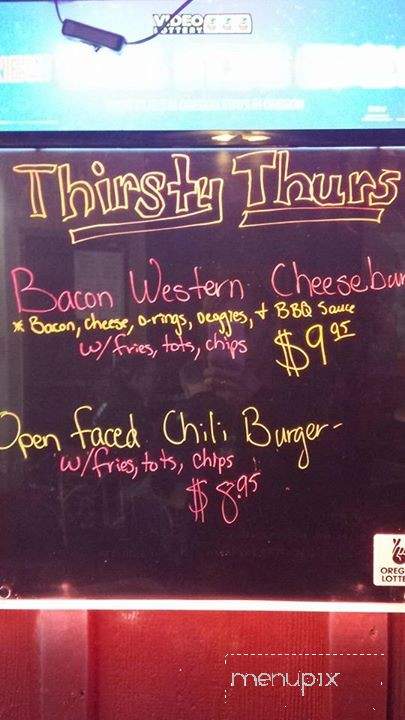 VIDEO
LOTTERY
Thirsty Thurs
Bacon Western Cheesebur
* Bacon, cheese, o-rings, veggies, + BBQ Sauce
w/fries, tots, chips
$9 95
Open faced Chili Burger-
w/fries, tots, chips
$8.95
OREG
LOTTE
menupix